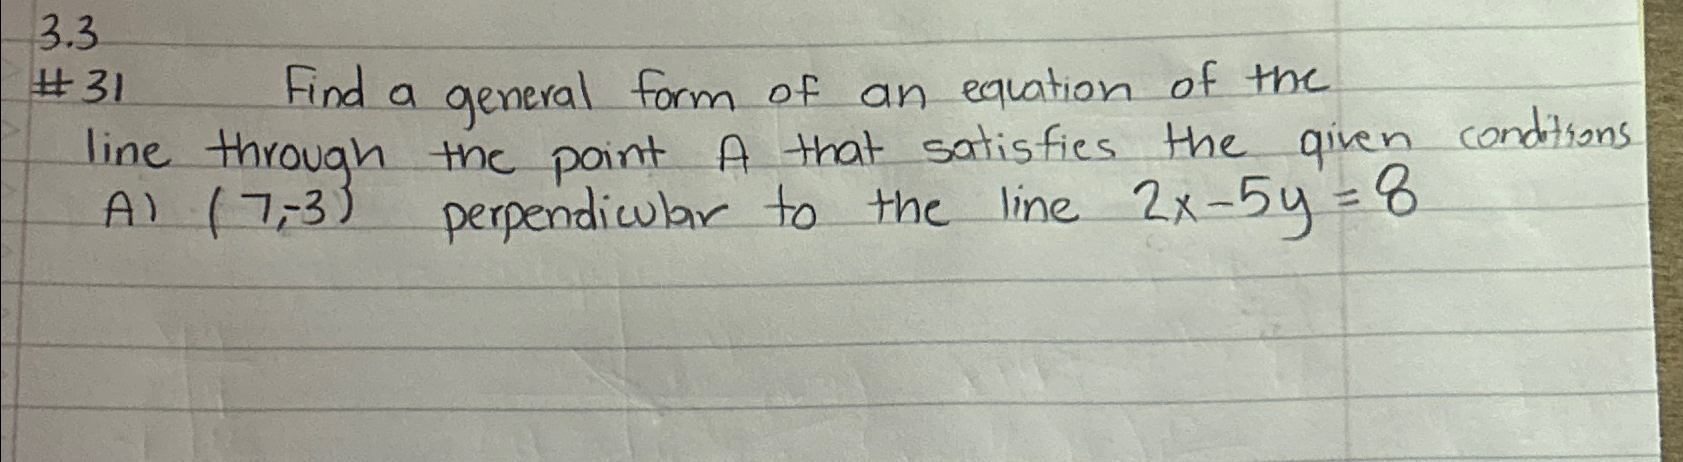 3.3
#31 Find a general form of an equation of the
line through the point A that satisfies the given conditions
A) (7,-3) perpendicular to the line 2x-5y=8